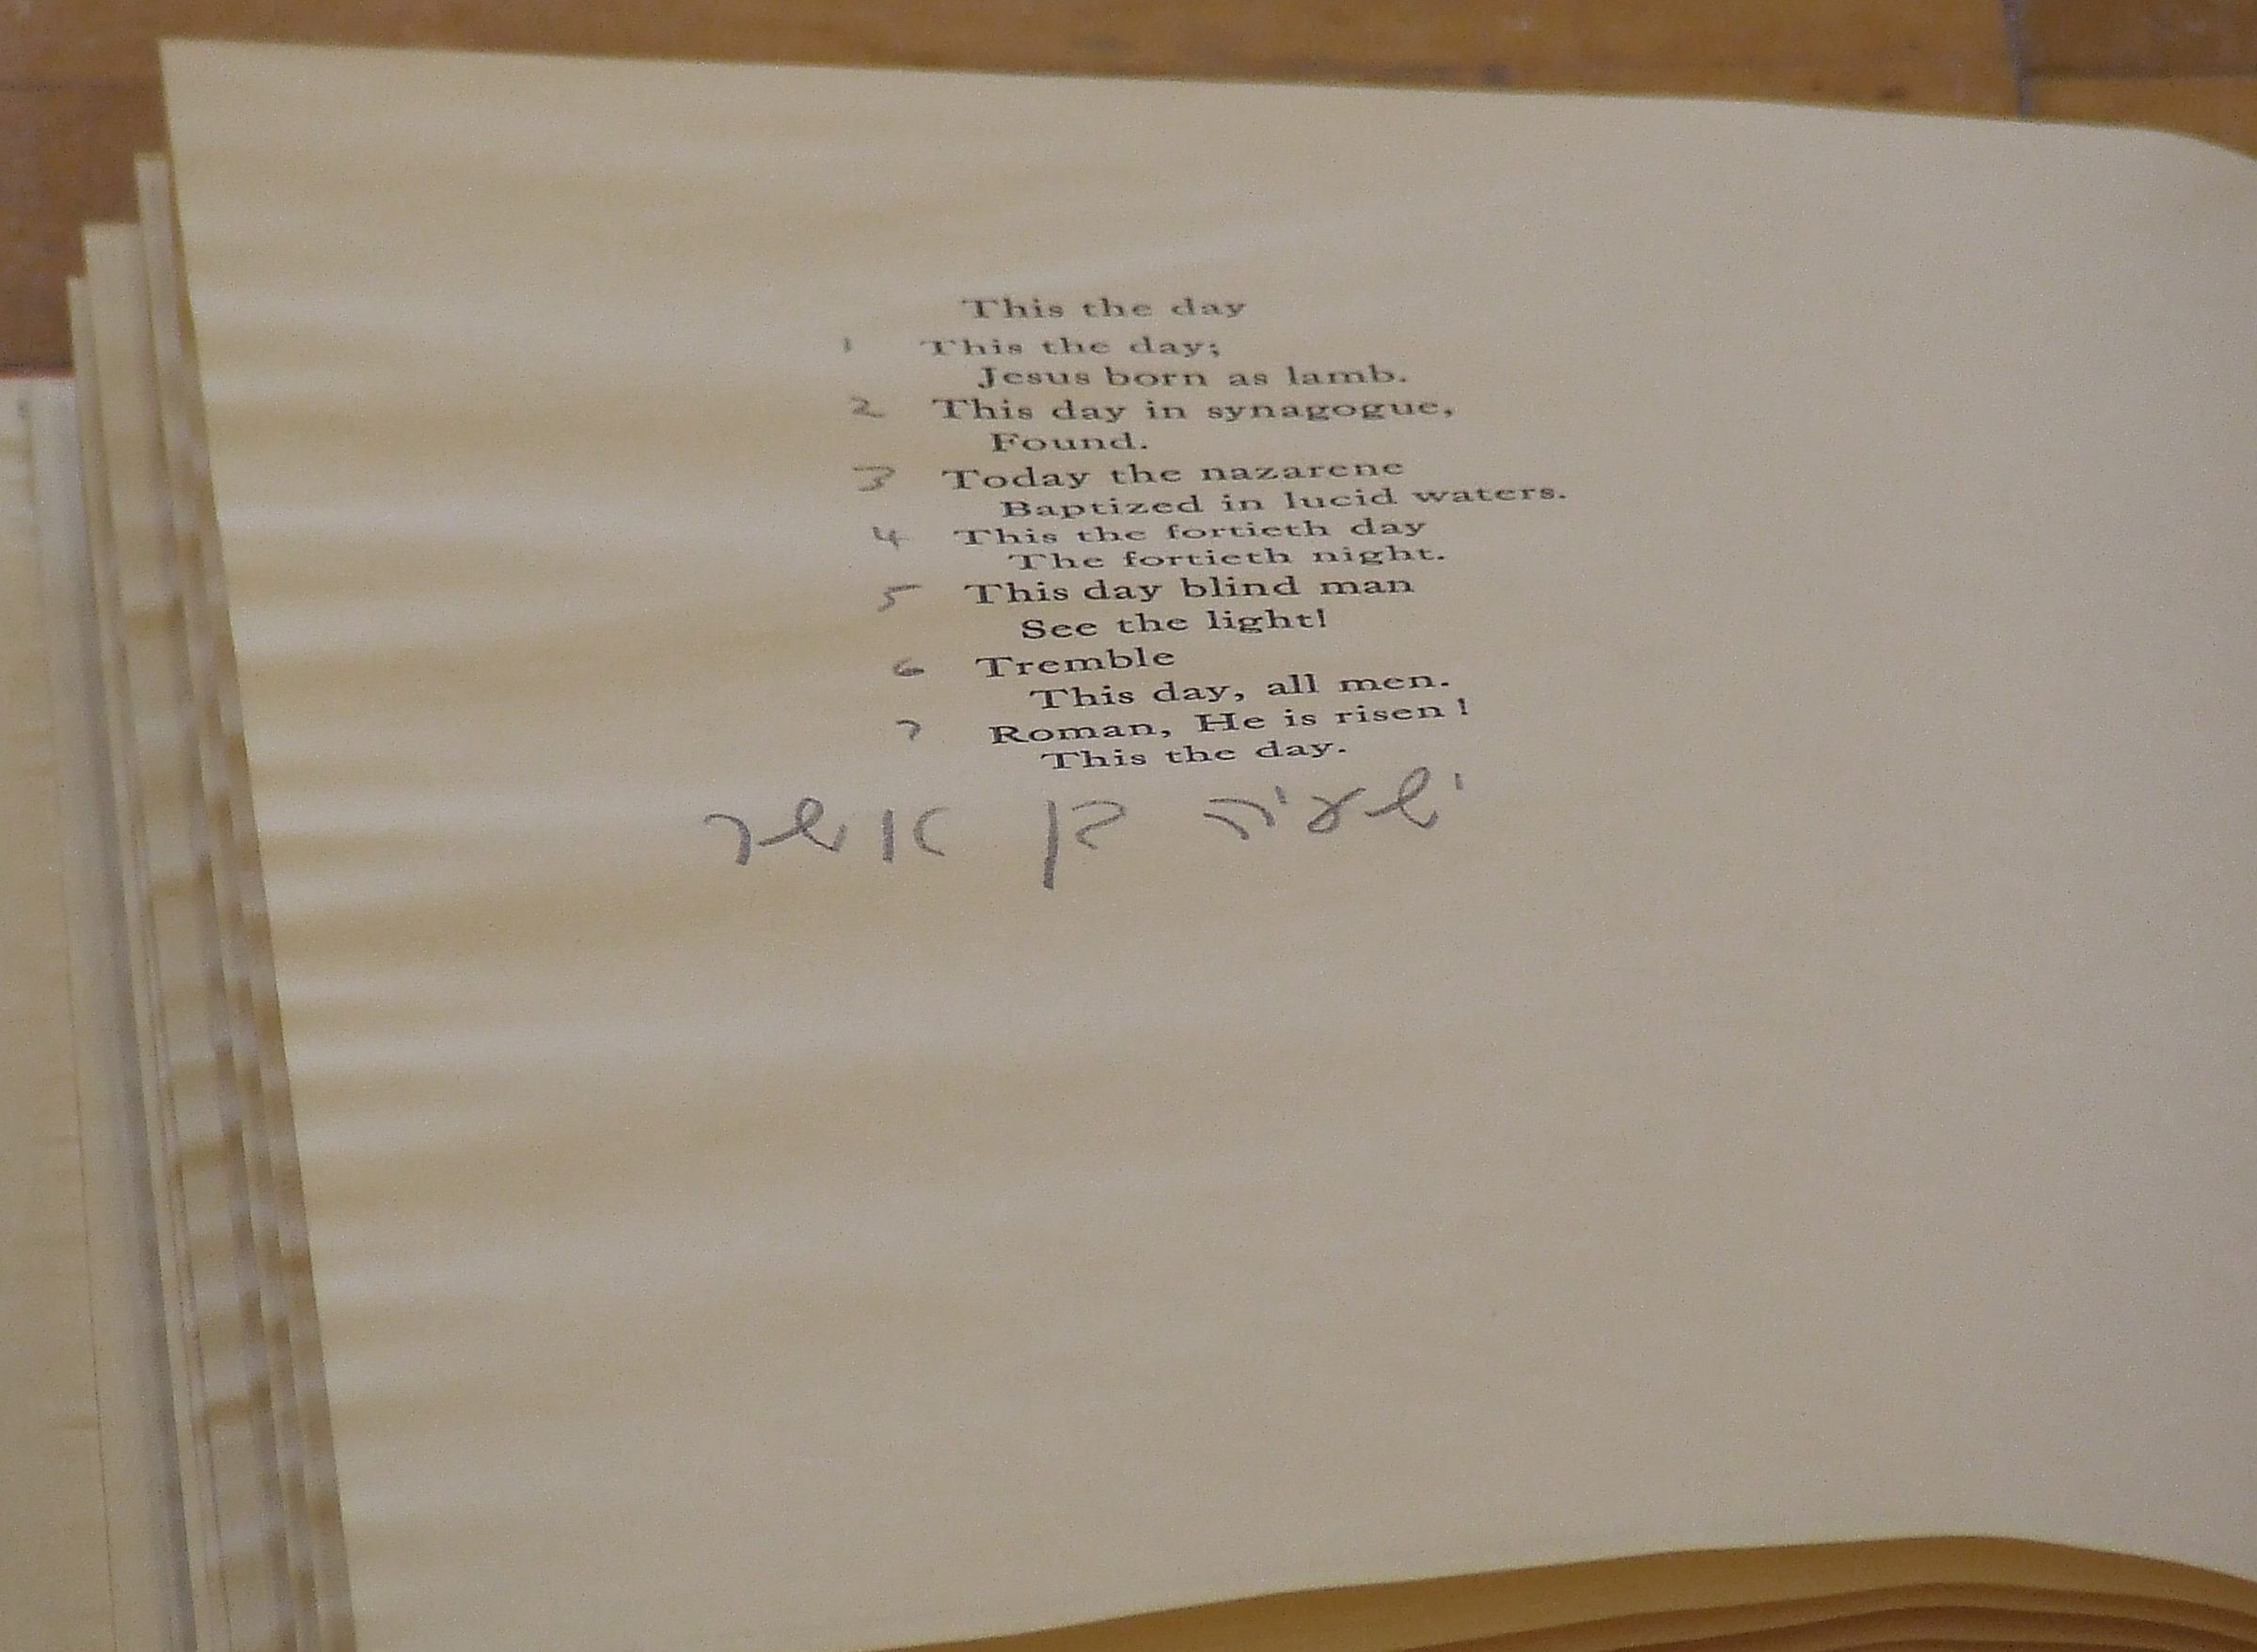 This the day
1 This the day;
Jesus born as lamb.
2 This day in synagogue,
Found.
3 Today the nazarene
Baptized in lucid waters.
4 This the fortieth day
The fortieth night.
5 This day blind man
See the light!
6 Tremble
This day, all men.
7 Roman, He is risen!
This the day.
ישעיה בן אשר